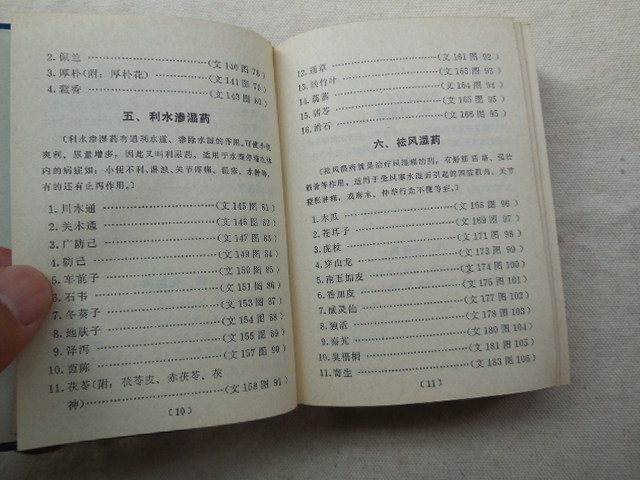 2.佩兰……(文 140 图 78)
3.厚朴(附:厚朴花)……(文 141 图 79)
4.藿香……(文 143 图 80)
五、利水渗湿药
(利水渗湿药有通利水道、渗除水湿的作用。可使小便
爽利、尿量增多,因此又叫利湿药。适用于水湿停滞在体
内的病症如:小便不利、淋浊、关节疼痛、痰多、水肿等,
有的还有止泻作用。)
1.川木通……(文 145 图 81)
2.关木通……(文 146 图 82)
3.广防己……(文 147 图 83)
4.防己……(文 149 图 84)
5.车前子……(文 150 图 85)
6.石韦……(文 151 图 86)
7.冬葵子……(文 153 图 87)
8.地肤子……(文 154 图 88)
9.泽泻……(文 155 图 89)
10.茵陈……(文 157 图 90)
11.茯苓(附:茯苓皮、赤茯苓、茯
神)……(文 158 图 91)
(10)
12.萹草……(文 161 图 92)
13.淡竹叶……(文 163 图 93)
14.萹蓄……(文 164 图 94)
15.猪苓……(文 165 图 95)
16.滑石……(文 166 图 95)
六、祛风湿药
(祛风湿药就是治疗风湿痛的药,有舒筋活络、强壮
筋骨等作用。适用于受风寒水湿而引起的四肢肌肉、关节
酸松肿痛,或麻木、伸举行走不便等症。)
1.木瓜……(文 168 图 96)
2.苍耳子……(文 169 图 97)
3.虎杖……(文 171 图 98)
4.穿山龙……(文 173 图 99)
5.南五加皮……(文 174 图 100)
6.香加皮……(文 175 图 101)
7.威灵仙……(文 177 图 102)
8.独活……(文 178 图 103)
9.秦艽……(文 180 图 104)
10.臭梧桐……(文 181 图 105)
11.寄生……(文 183 图 106)
(11)